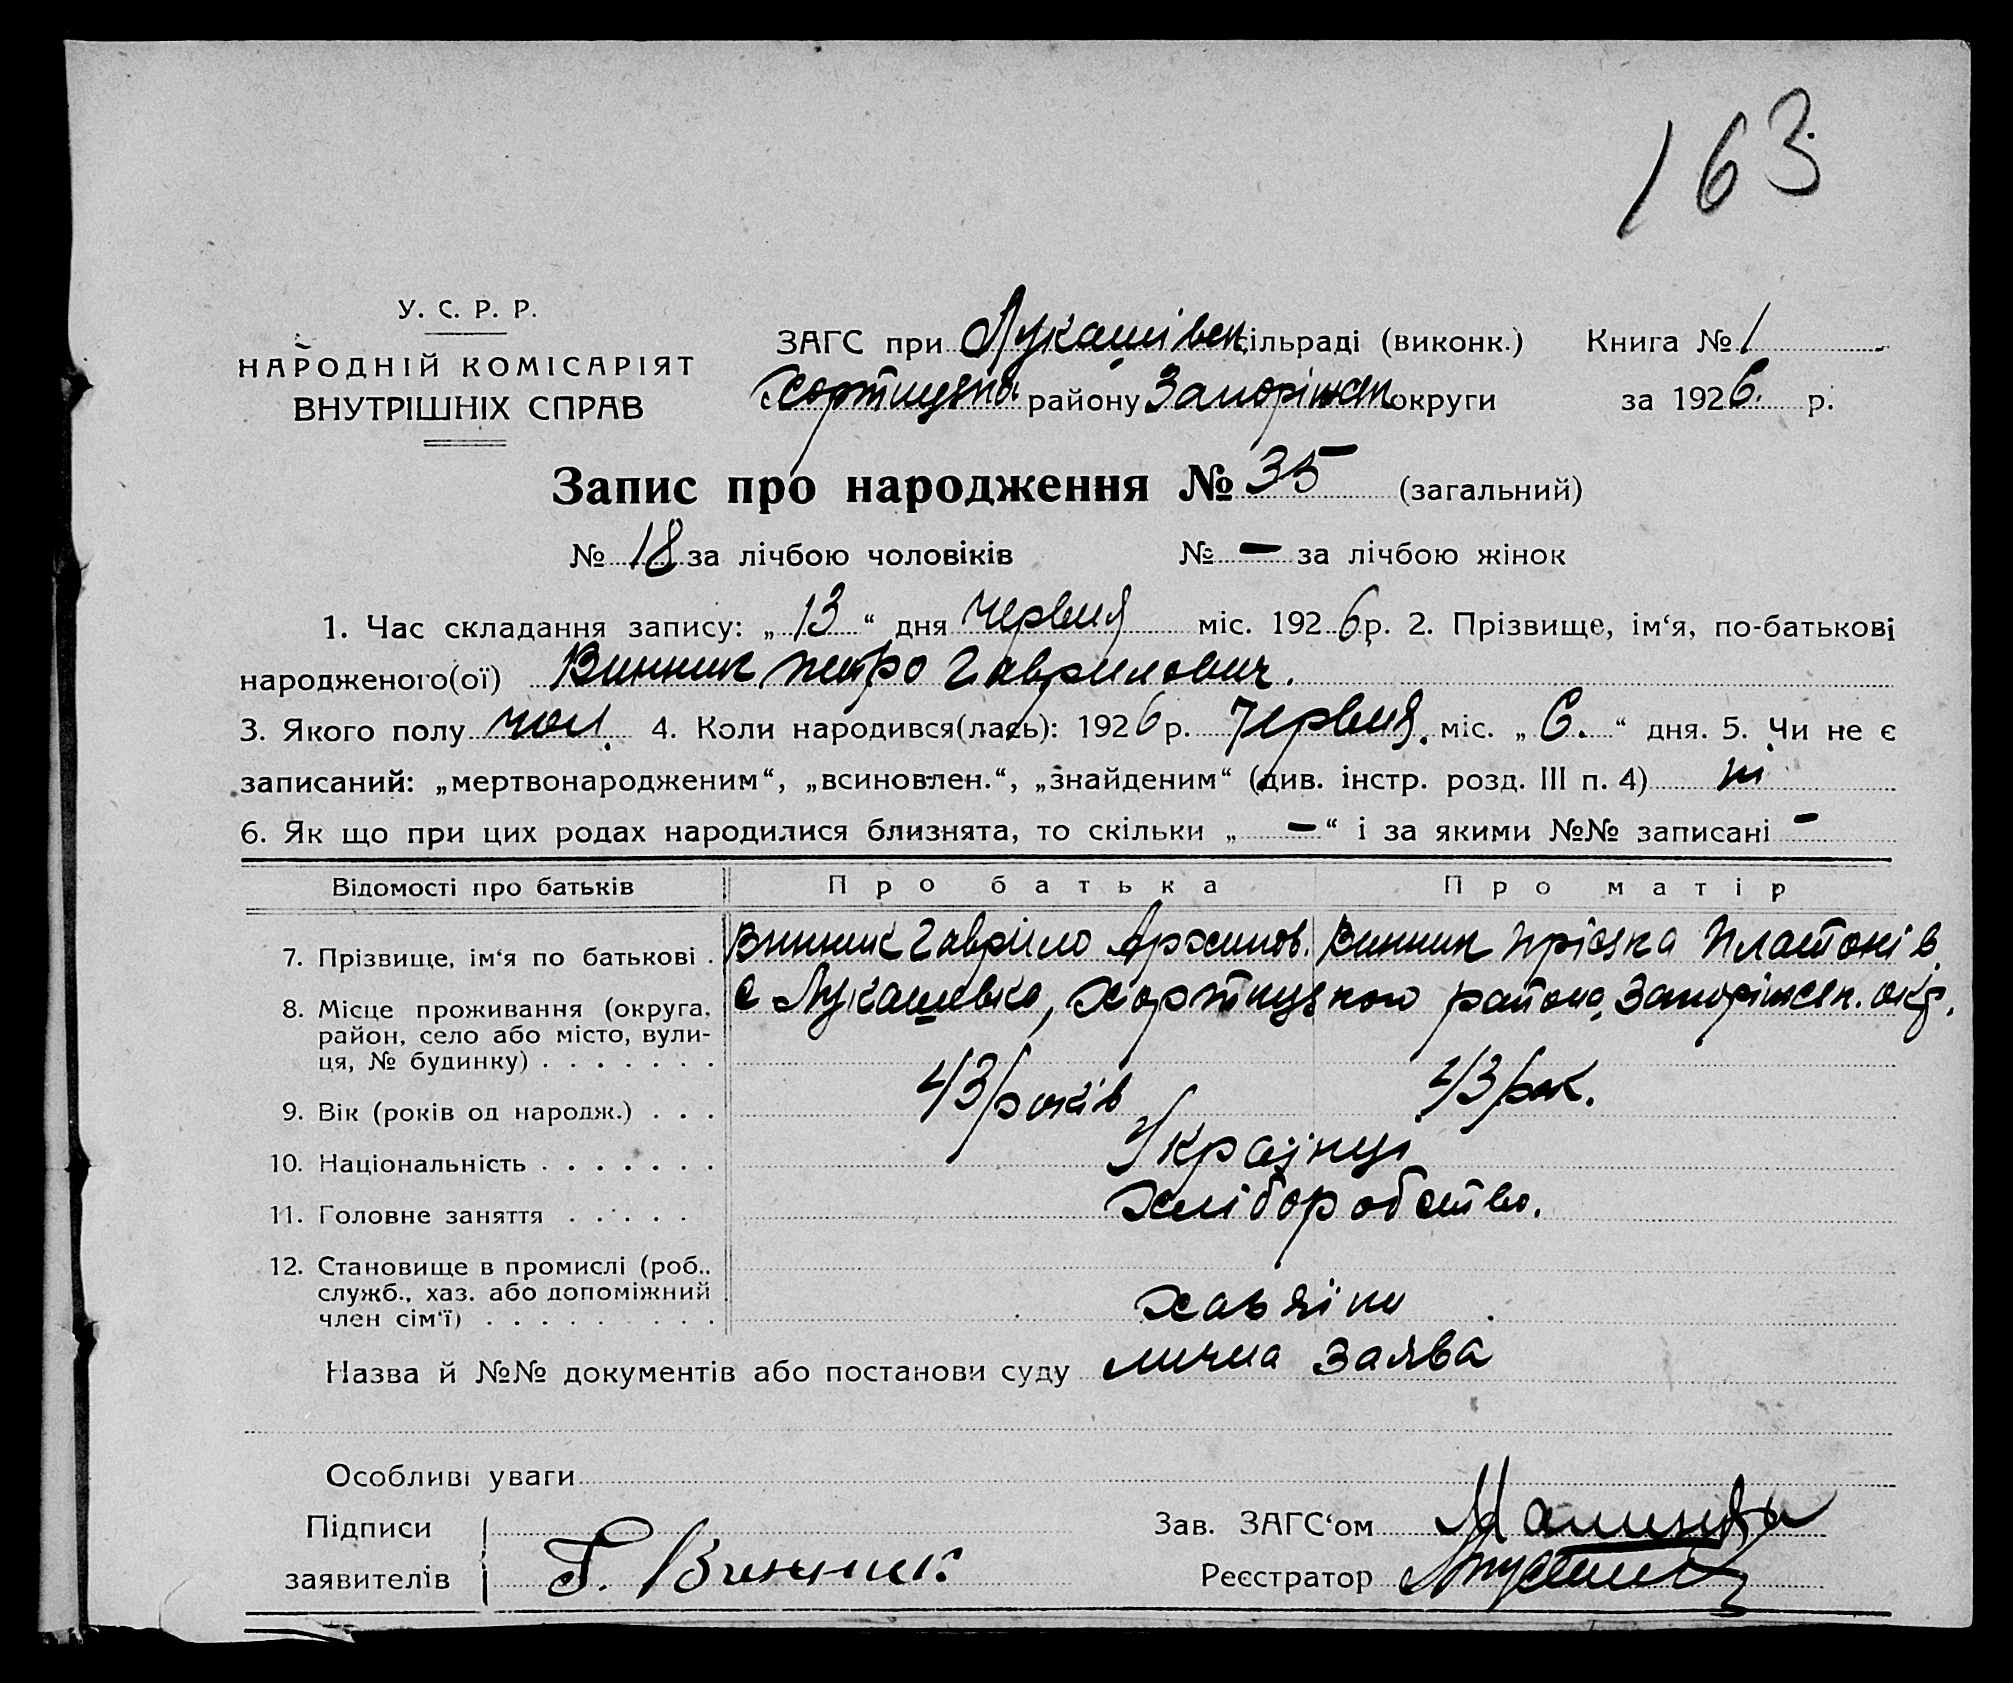 163
У. С. Р. Р.
НАРОДНІЙ КОМІСАРІЯТ
ВНУТРІШНІХ СПРАВ
ЗАГС при Лукашівськ сільраді (виконк.) Книга № 1
Хортицьк. району Запоріжськ округи за 1926. р.
Запис про народження № 35 (загальний)
№ 18 за лічбою чоловіків № — за лічбою жінок
1. Час складання запису: „13“ дня червня міс. 1926 р. 2. Прізвище, ім‘я, по-батькові
народженого(ої) Винник Петро Гаврилович.
3. Якого полу чол. 4. Коли народився(лась): 1926 р. Червня. міс. „6.“ дня. 5. Чи не є
записаний: „мертвонародженим“, „всиновлен.“, „знайденим“ (див. інстр. розд. III п. 4) ні
6. Як що при цих родах народилися близнята, то скільки „—“ і за якими №№ записані —
Відомості про батьків Про батька Про матір
7. Прізвище, ім‘я по батькові . Винник Гаврило Архипов. Винник Пріська Платонів.
8. Місце проживання (округа, с Лукашевка, Хортицького района, Запоріжськ. окр.
район, село або місто, вули-
ця, № будинку) . . . . . . .
9. Вік (років од народж.) . . . 43 років 43 рок.
10. Національність . . . . . . . Українці
11. Головне заняття . . . . . Хліборобство.
12. Становище в промислі (роб.,
служб., хаз. або допоміжний
член сім‘ї) . . . . . . . . . хазяіни
Назва й №№ документів або постанови суду лична заява
Особливі уваги
Підписи Зав. ЗАГС‘ом
заявителів Г. Винник. Реєстратор